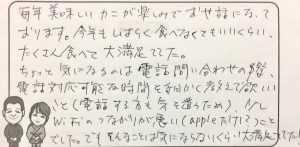 毎年美味しいカニが楽しみでお世話になって
おります。今年もしばらく食べなくてもいいくらい、
たくさん食べて大満足でした。
ちょっと気になるのは電話問い合わせの際、
電話対応可能な時間を細かく考えて欲しい
こと(電話する方も気を遣うため)、少し
Wi-おのつながりが悪い(appleだけ?)こと
でした。でもそんなことは気にならないくらい大満足でした!